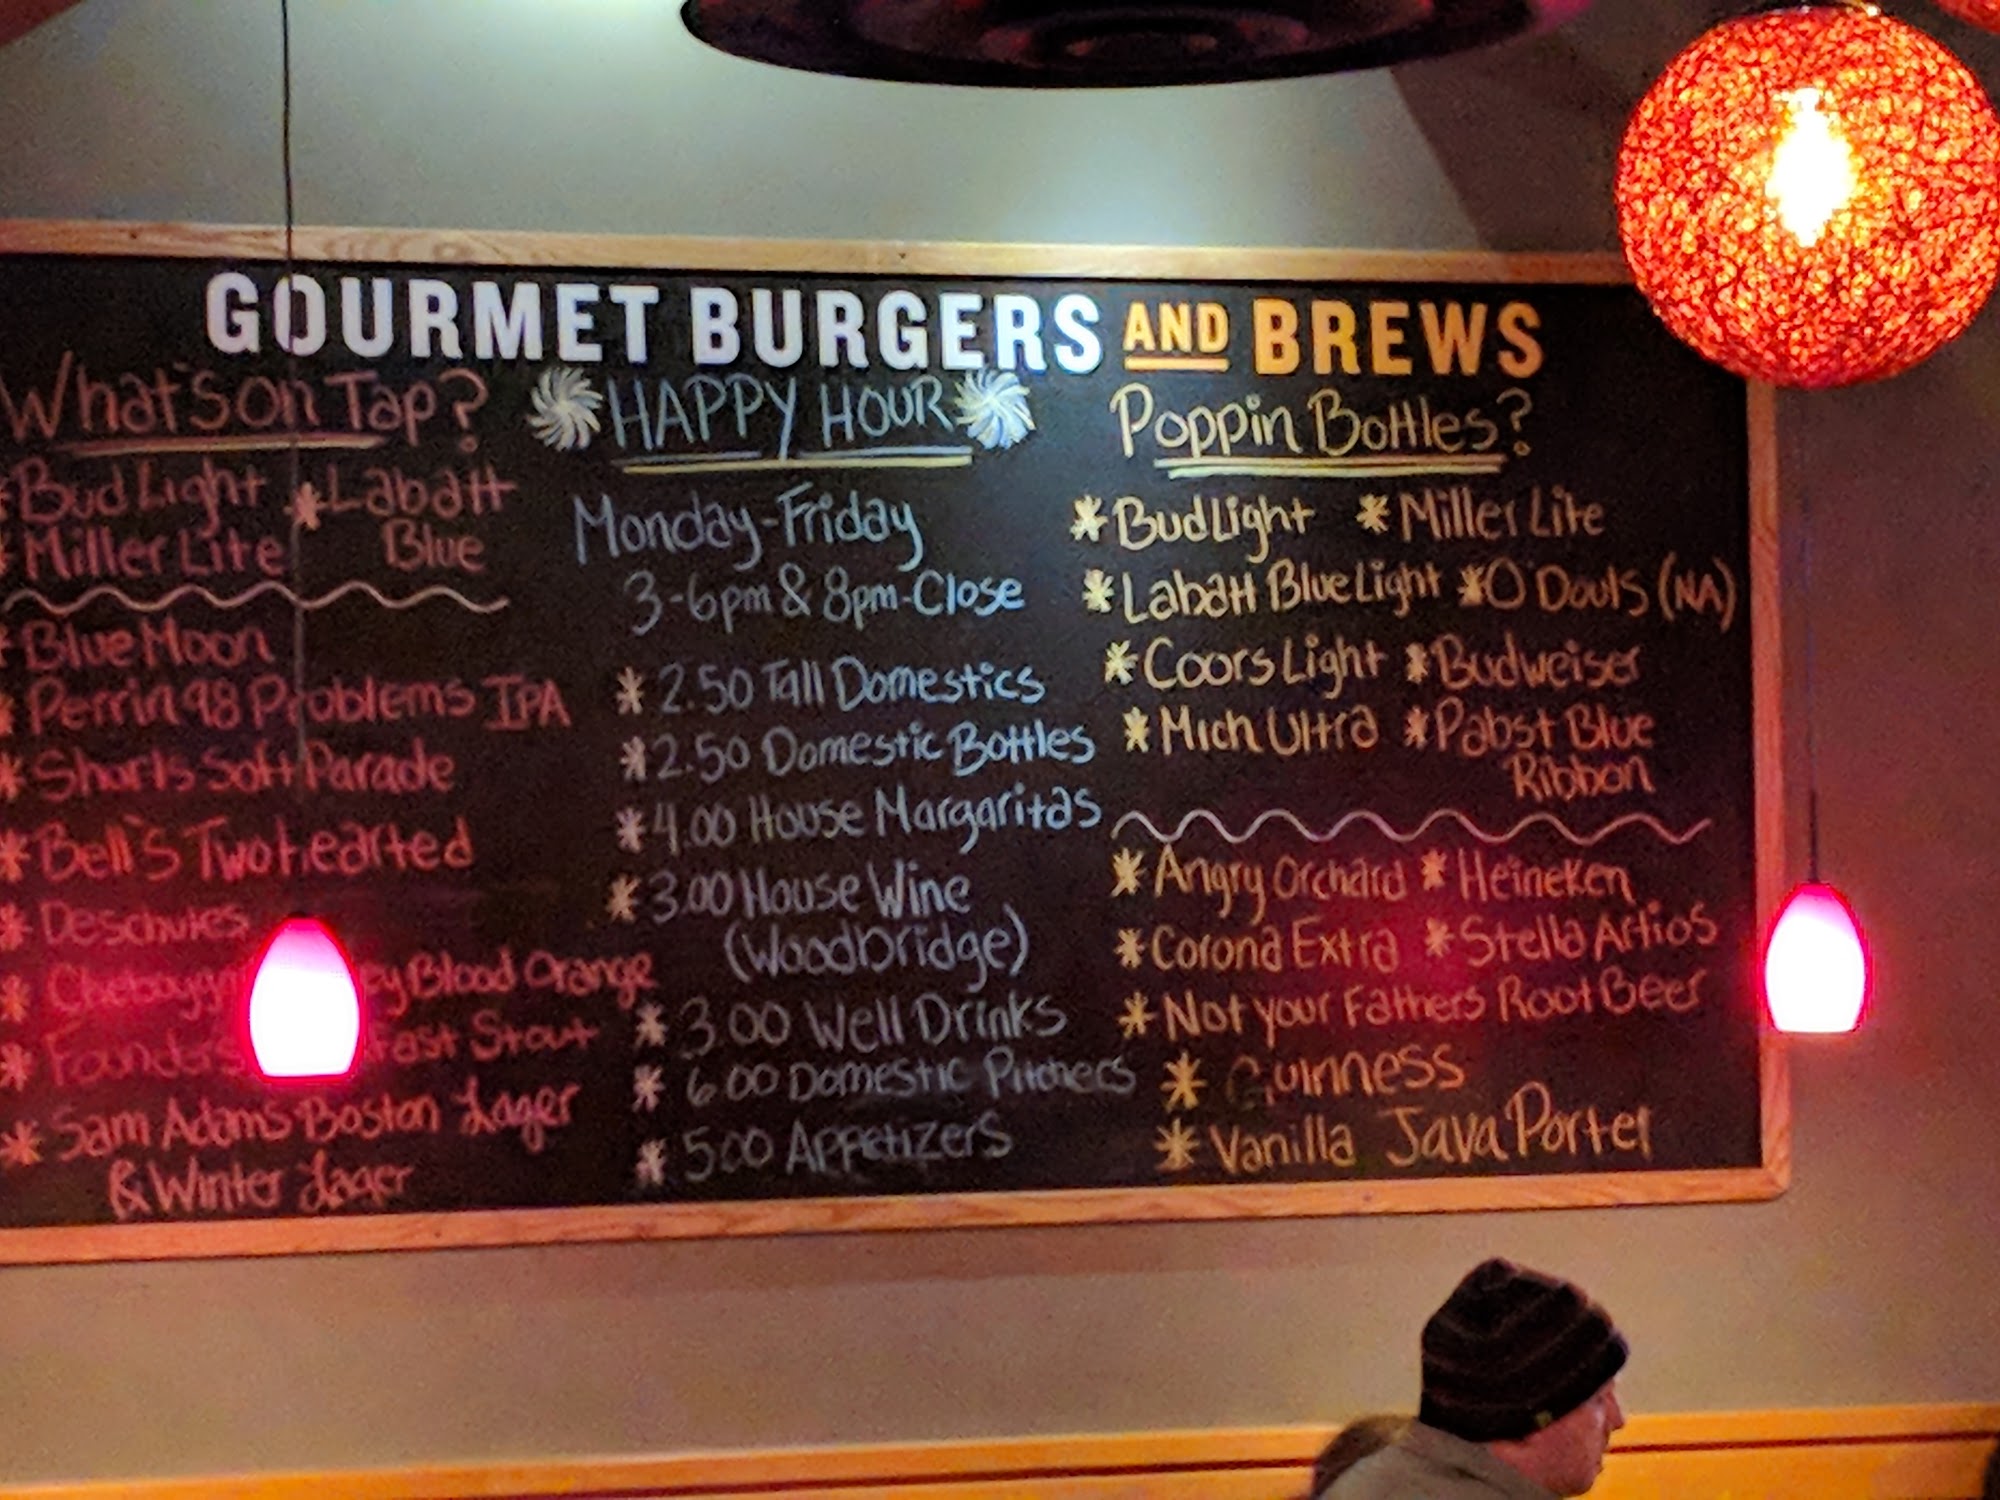 GOURMET BURGERS AND BREWS
What's On Tap?
* Bud Light * Labatt
Blue
* Miller Lite
* Blue Moon
* Perrin 98 Problems IPA
* Shorts Soft Parade
* Bell's Two hearted
* Deschutes
* Blood Orange
* Founders Stout
* Sam Adams Boston Lager
& Winter Lager
HAPPY HOUR
Monday-Friday
3-6pm & 8pm-Close
* 2.50 Tall Domestics
* 2.50 Domestic Bottles
* 4.00 House Margaritas
* 3.00 House Wine
(Woodbridge)
* 3.00 Well Drinks
* 6.00 Domestic Pitchers
* 5.00 Appetizers
Poppin Bottles?
* Bud Light * Miller Lite
* Labatt Blue Light * O'Douls (NA)
* Coors Light * Budweiser
* Mich Ultra * Pabst Blue
Ribbon
* Angry Orchard * Heineken
* Corona Extra * Stella Artios
* Not your Fathers Root Beer
* Guinness
* Vanilla Java Porter